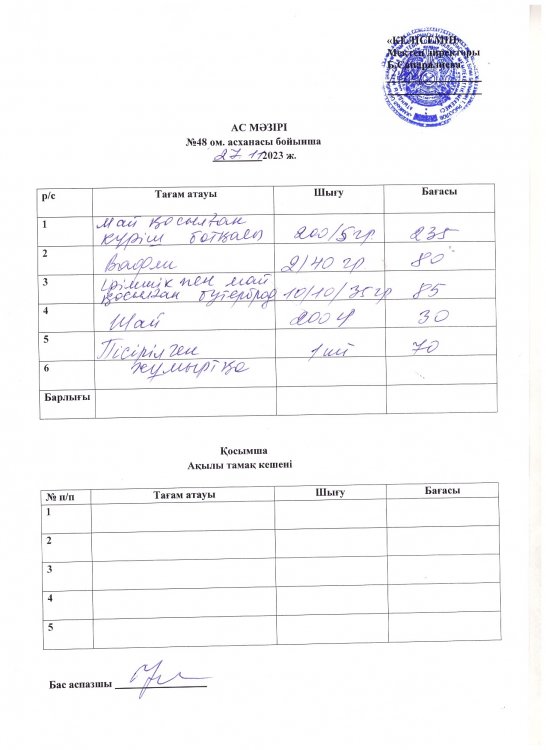 «КЕЛІСЕМІН»
Мектеп директоры
Б.Сапаралиева
АС МӘЗІРІ
№48 ом. асханасы бойынша
27.11 2023 ж.
р/с Тағам атауы Шығу Бағасы
1 Май қосылған
күріш ботқасы 200/5 гр 235
2 Вафли 2/40 гр 80
3 Ірімшік пен май
қосылған бутерброд 10/10/35 гр 85
4 Шай 200 30
5 Пісірілген 1 шт 70
6 жұмыртқа
Барлығы
Қосымша
Ақылы тамақ кешені
№ п/п Тағам атауы Шығу Бағасы
1
2
3
4
5
Бас аспазшы